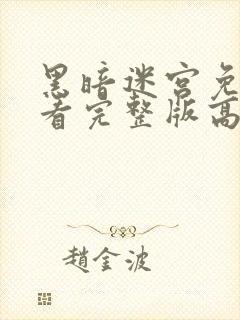 黑暗迷宫免
看完整版高
趙金波